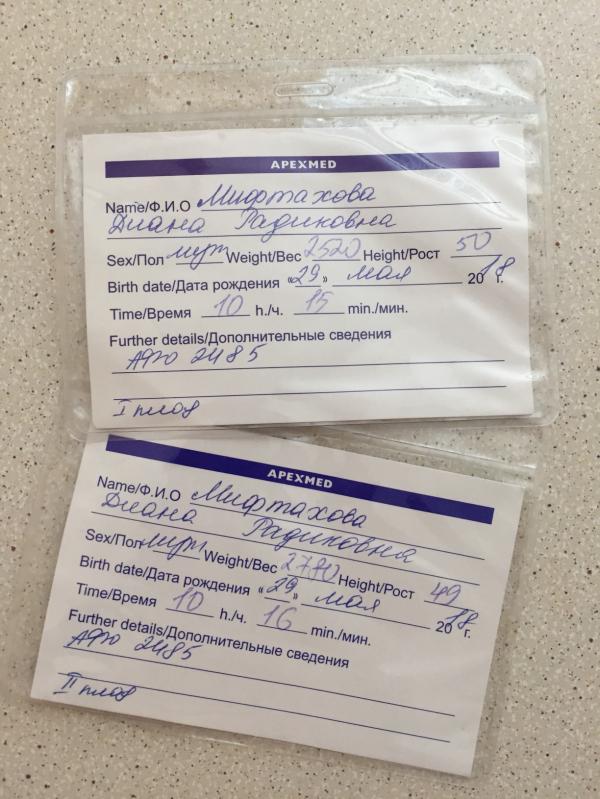 APEXMED
Name/Ф.И.О Мифтахова
Диана Радиковна
Sex/Пол муж Weight/Вес 2520 Height/Рост 50
Birth date/Дата рождения «29» мая 2018 г.
Time/Время 10 h./ч. 15 min./мин.
Further details/Дополнительные сведения
АФЮ 2485
I плод
APEXMED
Name/Ф.И.О Мифтахова
Диана Радиковна
Sex/Пол муж Weight/Вес 2780 Height/Рост 49
Birth date/Дата рождения «29» мая 2018 г.
Time/Время 10 h./ч. 16 min./мин.
Further details/Дополнительные сведения
АФЮ 2485
II плод